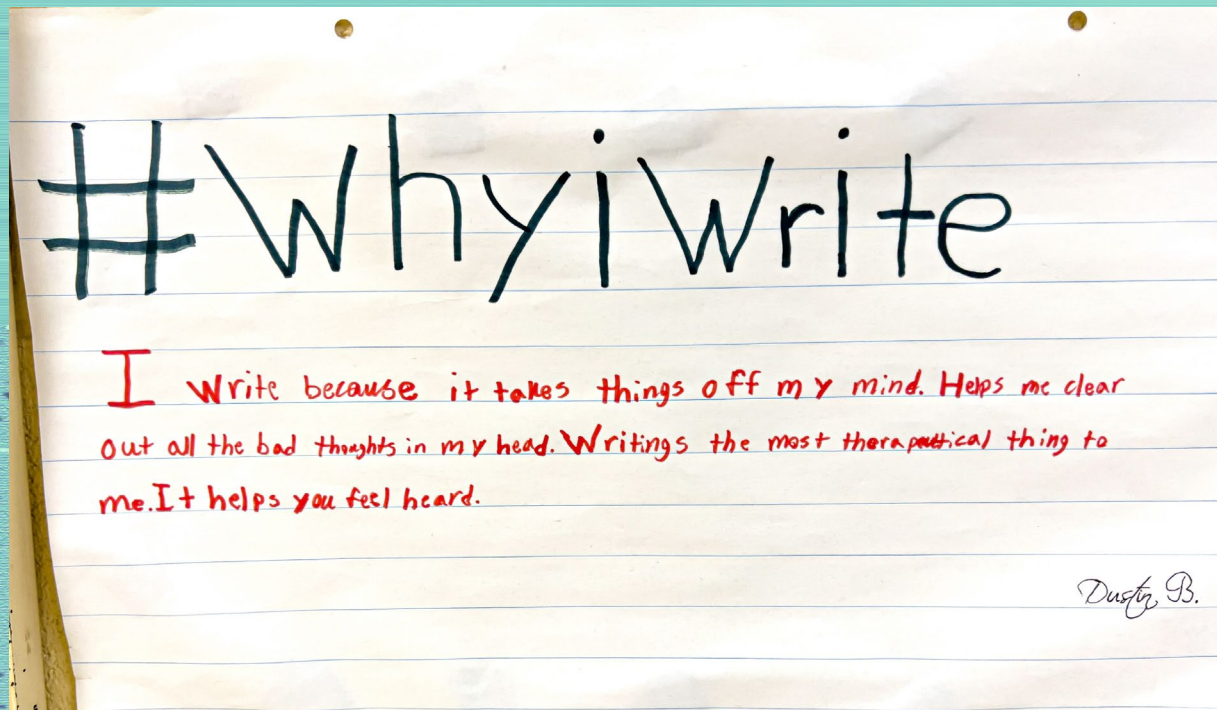 #WhyiWrite
I write because it takes things off my mind. Helps me clear
out all the bad thoughts in my head. Writings the most therapeutical thing to
me. It helps you feel heard.
Dustin B.